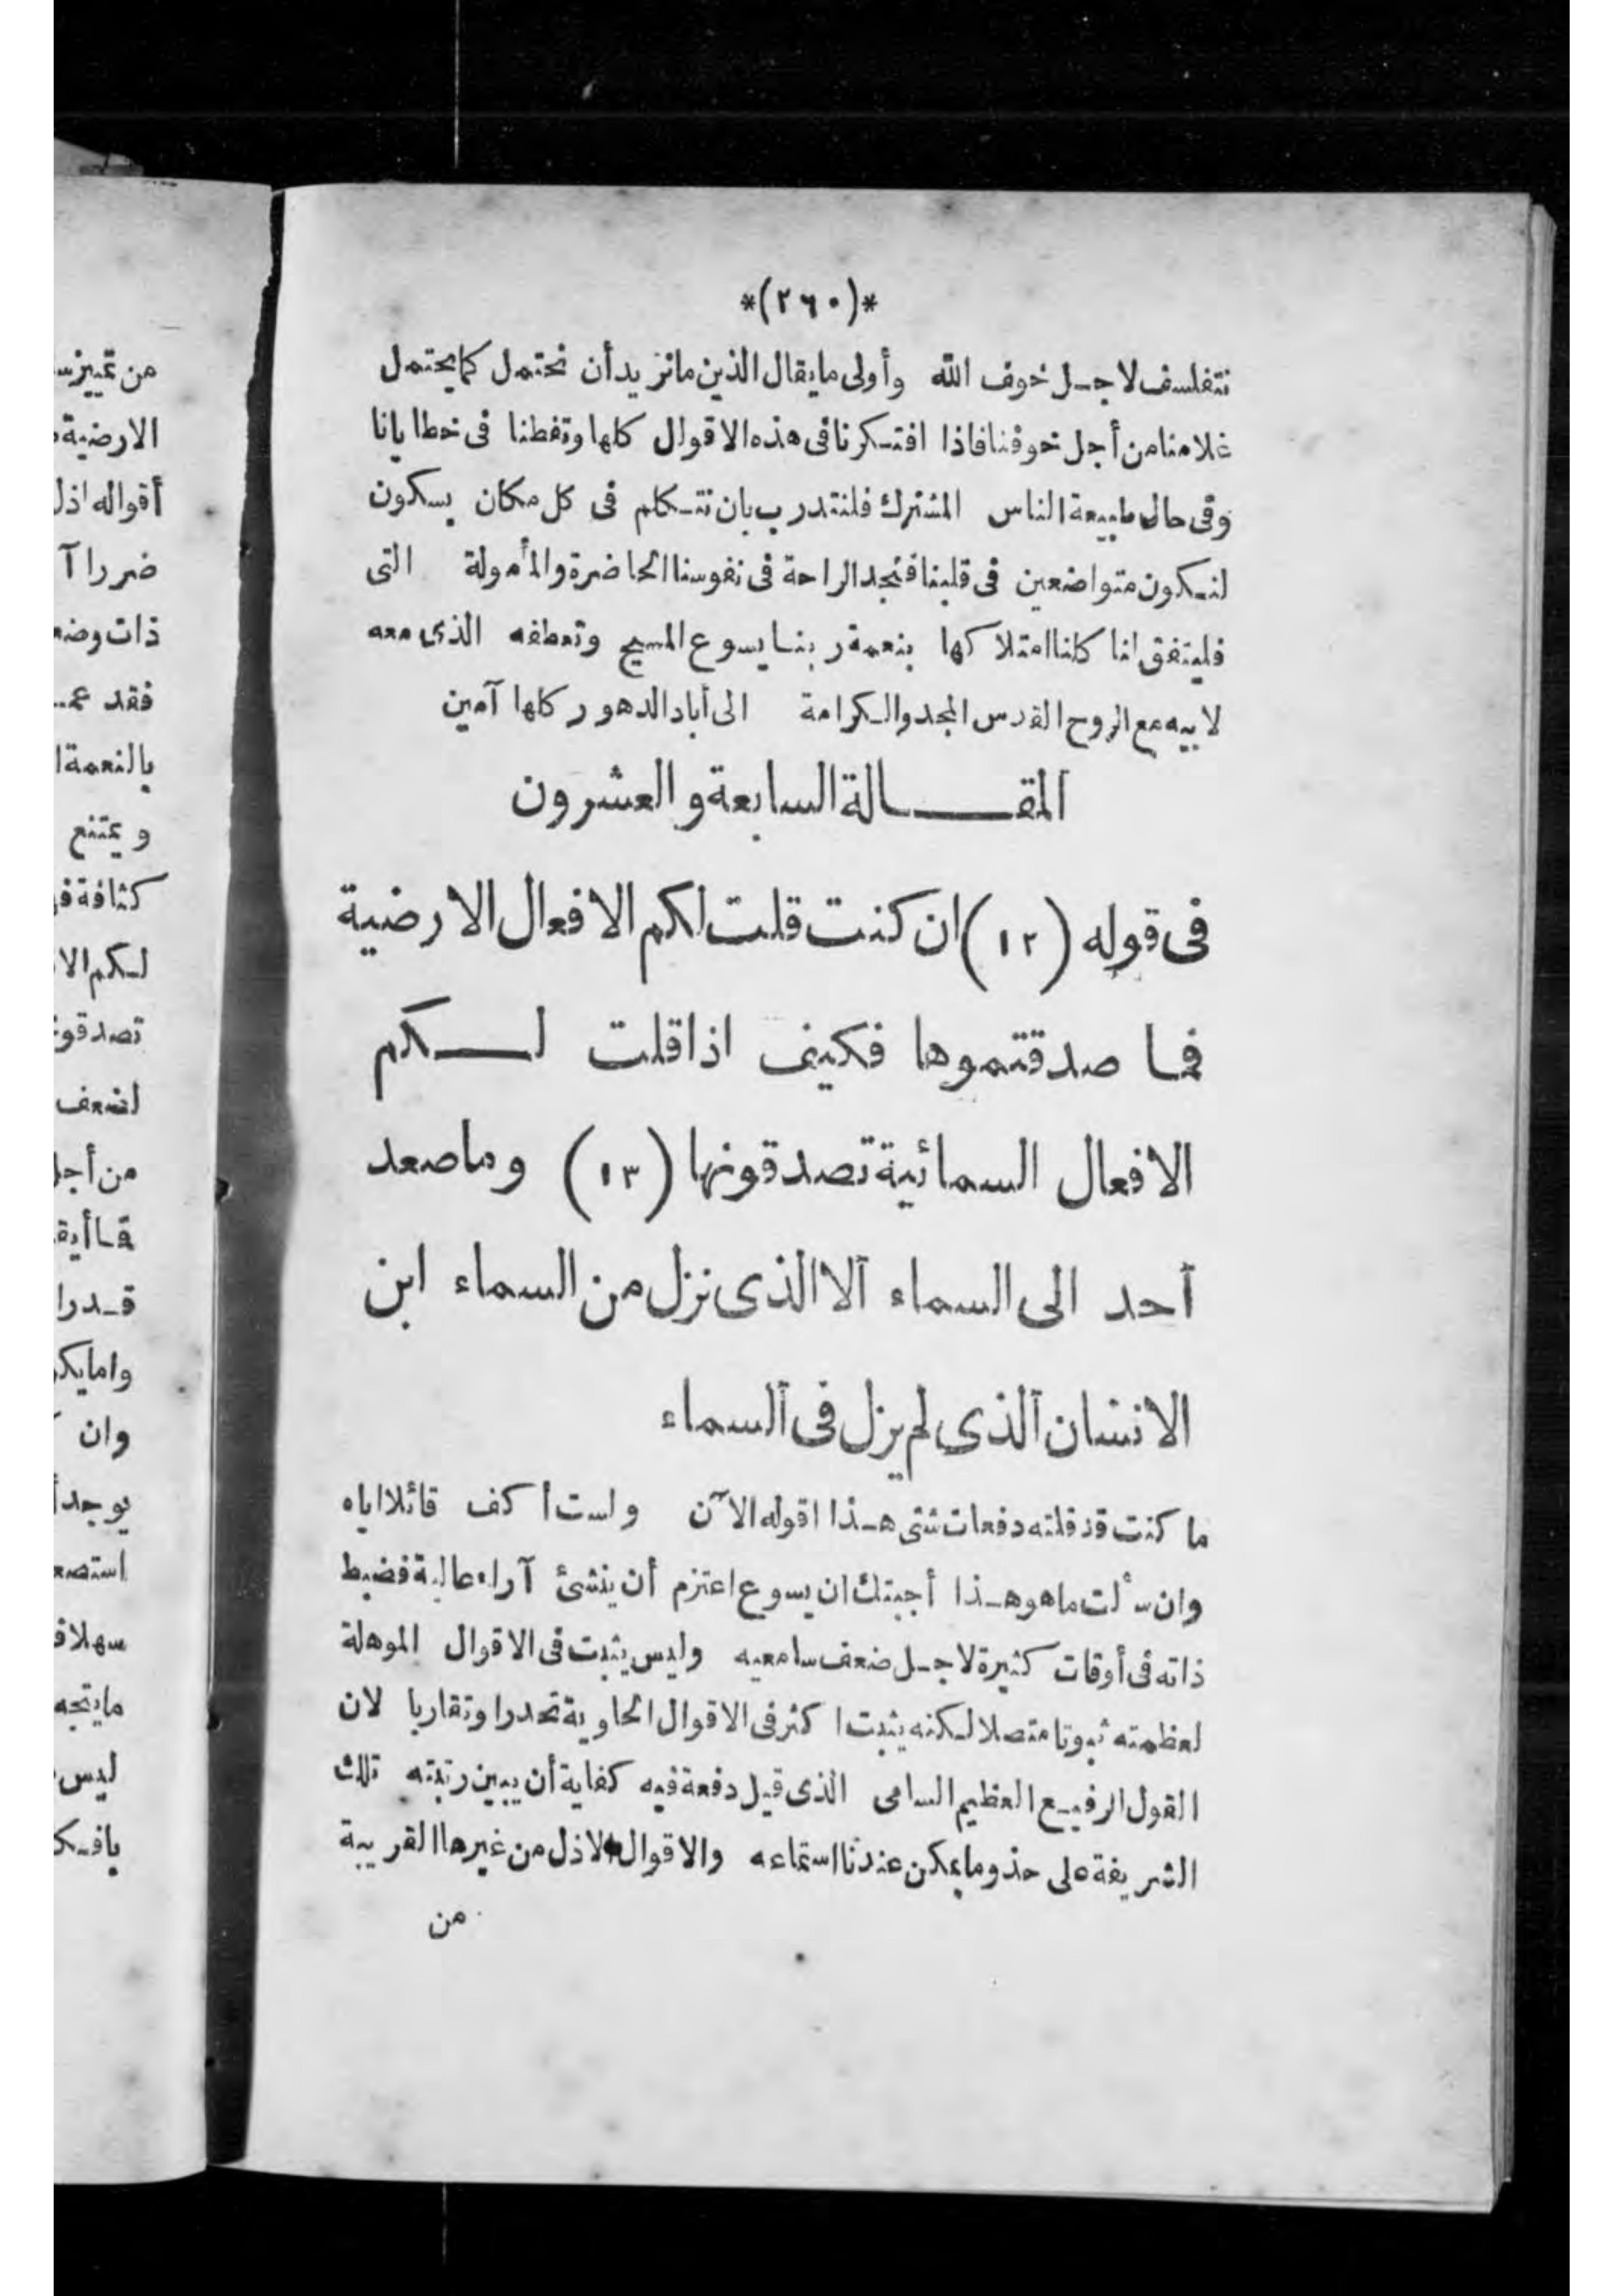 *(٢٦٠)*
نتفلسف لاجل خوف الله وأولى ما يقال الذين ما نزيد أن نحتمل كما يحتمل
غلامنا من أجل خوفنا فاذا افتكرنا في هذه الاقوال كلها وتفطنا في خطايانا
وفي حال طبيعة الناس المشترك فلنتدرب بان نتكلم في كل مكان بسكون
لنكون متواضعين في قلبنا فنجد الراحة في نفوسنا الحاضرة والمأمولة التى
فليتفق لنا كلنا امتلاكها بنعمة ربنا يسوع المسيح وتعطفه الذى معه
لابيه مع الروح القدس المجد والكرامة الى أباد الدهور كلها آمين
المقالة السابعة والعشرون
في قوله (١٢) ان كنت قلت لكم الافعال الارضية
فما صدقتموها فكيف اذا قلت لكم
الافعال السمائية تصدقونها (١٣) وما صعد
أحد الى السماء الا الذى نزل من السماء ابن
الانسان الذى لم يزل في السماء
ما كنت قد قلته دفعات شتى هذا اقوله الآن ولست أكف قائلا اياه
وان سألت ما هو هذا أجبتك ان يسوع اعتزم أن ينشئ آراء عالية فضبط
ذاته في أوقات كثيرة لاجل ضعف سامعيه وليس يثبت في الاقوال الموهلة
لعظمته ثبوتا متصلا لكنه يثبت أكثر في الاقوال الحاوية تحدرا وتقاربا لان
القول الرفيع العظيم السامى الذى قيل دفعة فيه كفاية أن يبين رتبته تلك
الشريفة على حذو ما يمكن عندنا استماعه والاقوال الاذل من غيرها القريبة
من
من تمييز
الارضية
أقواله اذل
ضررا آ
ذات وضع
فقد
بالنعمة ا
ويمتنع
كثافة
لكم الا
تصدقو
لضعف
من أجل
قدرا
وان
يوجد
ليس